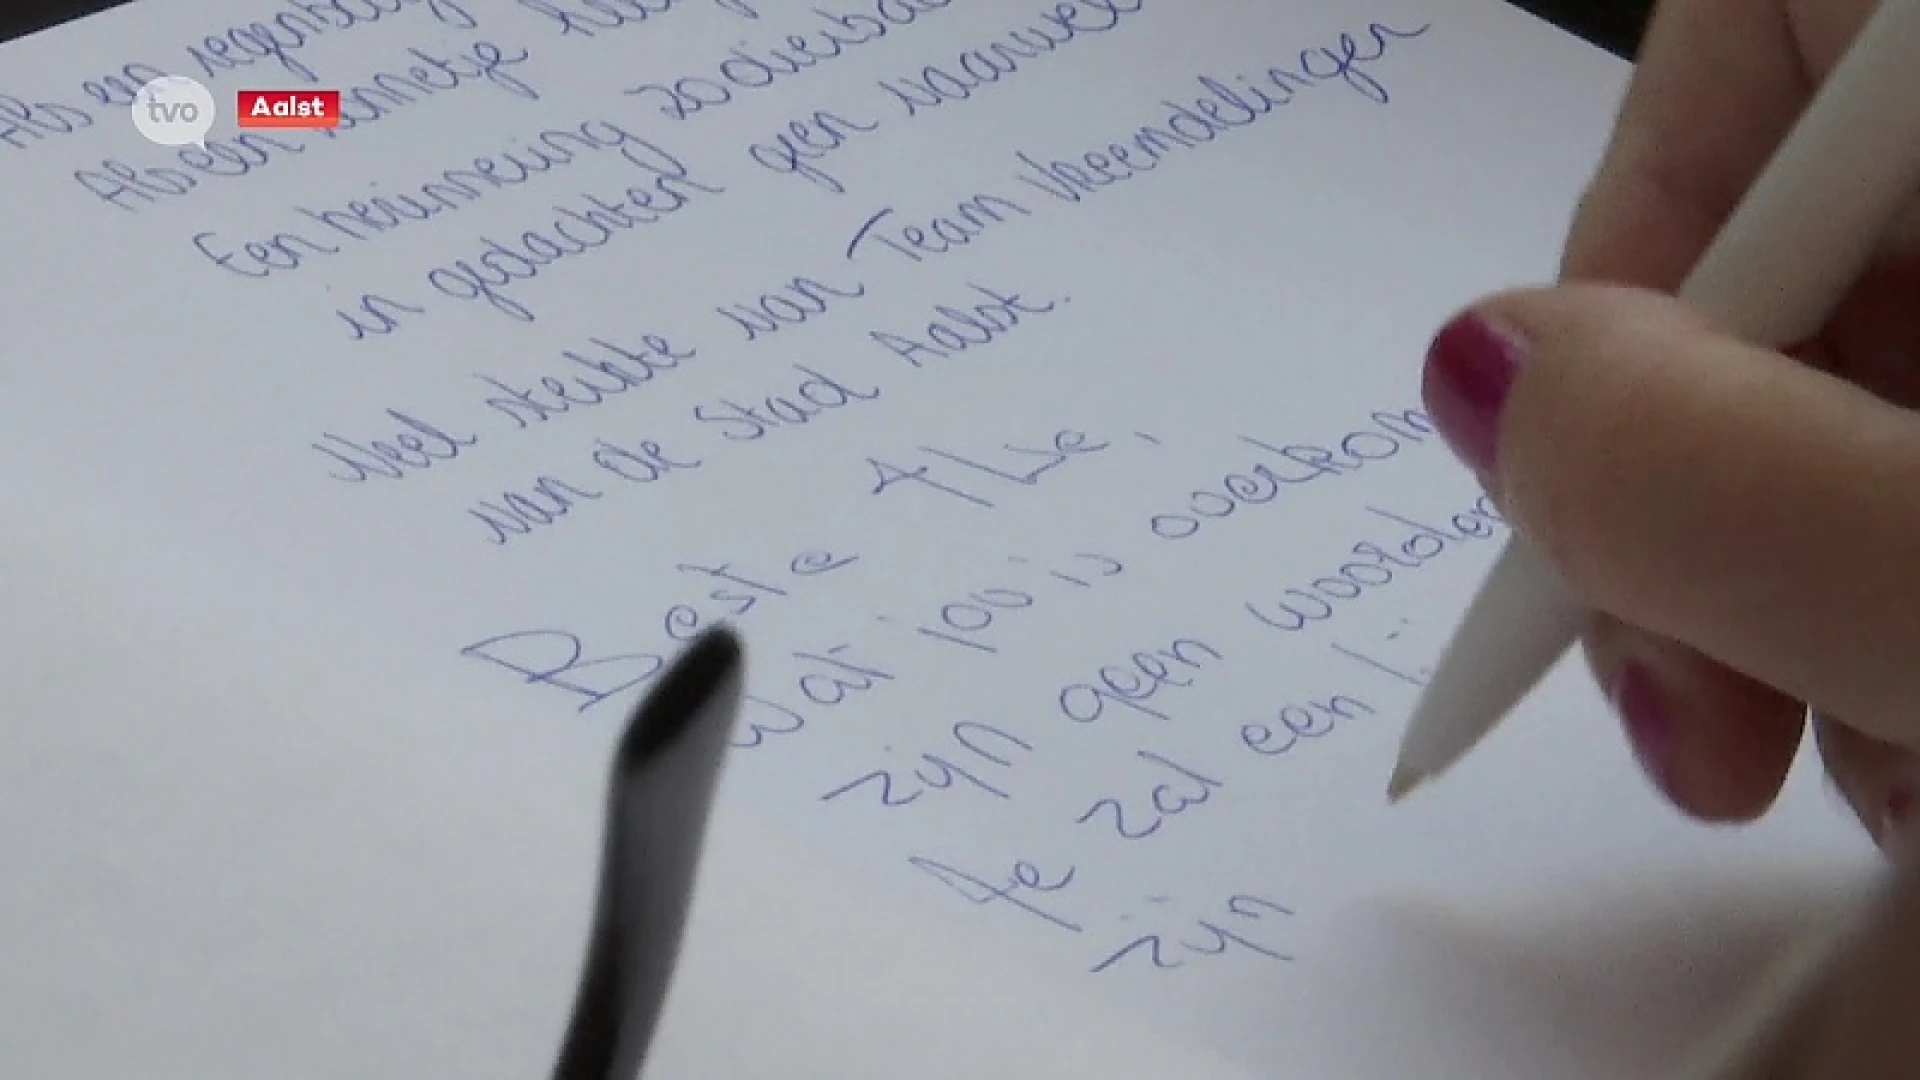 tvo
Aalst
Als een regenb
Als een zonnetje
Een herinnering zo dierba
in gedachten geen vaarwel
Veel sterkte van Team Vreemdelingen
van de Stad Aalst.
Beste Ilse,
Wat jou is overkom
zijn geen woorden
te zal een
zijn